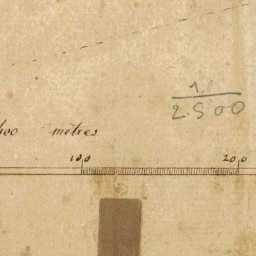 1
2.500
mètres
100
200